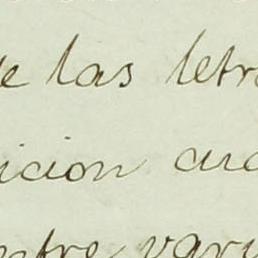 e las letra
icion cua
ntre vari